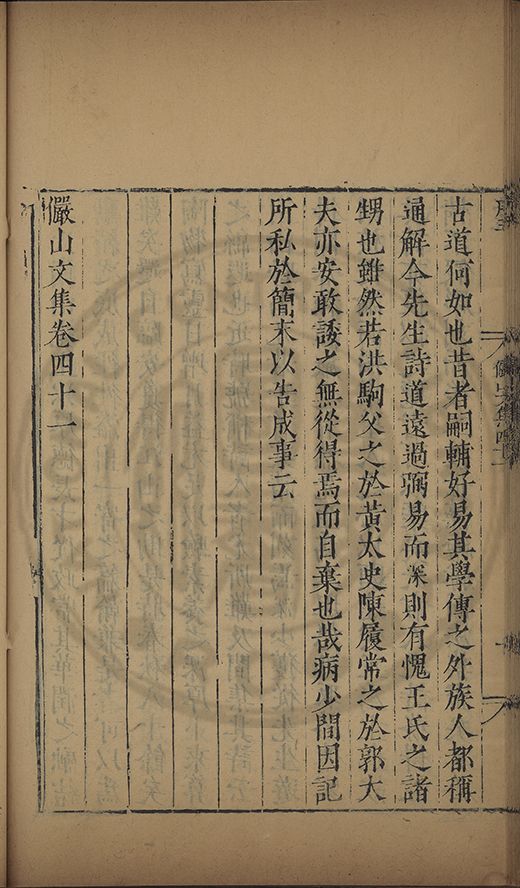 古道何如也昔者嗣輔好易其學傳之外族人都稱
通解今先生詩道遠過弼易而深則有愧王氏之諸
甥也雖然若洪駒父之於黃太史陳履常之於郭大
夫亦安敢諉之無從得焉而自棄也哉病少間因記
所私於簡末以告成事云
儼山文集卷四十一